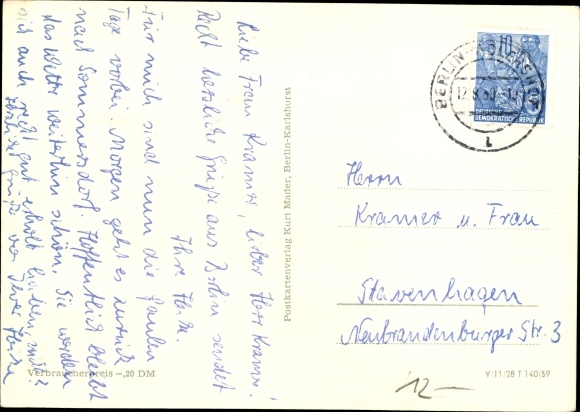 Liebe Frau Kramer, lieber Herr Kramer!
Recht herzliche Grüße aus Berlin sendet
Ihre
Für mich sind nun die faulen
Tage vorbei. Morgen geht es zurück
nach Sommersdorf. Hoffentlich bleibt
das Wetter weiterhin schön. Sie werden
sich auch recht gut erholt haben, nicht?
Postkartenverlag Kurt Mader, Berlin-Karlshorst
10
DEUTSCHE
DEMOKRATISCHE REPUBLIK
BERLIN
Herrn
Kramer u. Frau
Stavenhagen
Neubrandenburger Str. 3
Verbraucherpreis -,20 DM
12-
V/11/28 T 140/59